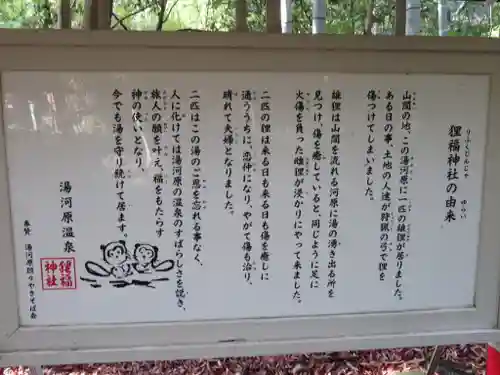 狸福神社の由来
りふくじんじゃ ゆらい
山間の地、この湯河原に一匹の雄狸が居りました。
ある日の事、土地の人達が狩猟の弓で狸を
傷つけてしまいました。
雄狸は山間を流れる河原に湯の湧き出る所を
見つけ、傷を癒していると、同じように足に
火傷を負った雌狸が浸かりにやって来ました。
二匹の狸は来る日も来る日も傷を癒しに
通ううちに、恋仲になり、やがて傷も治り、
晴れて夫婦となりました。
二匹はこの湯のご恩を忘れる事なく、
人に化けては湯河原の温泉のすばらしさを説き、
旅人の願を叶え、福をもたらす
神の使いとなり、
今でも湯を守り続けて居ます。
湯河原温泉
狸福神社
奉賛 湯河原